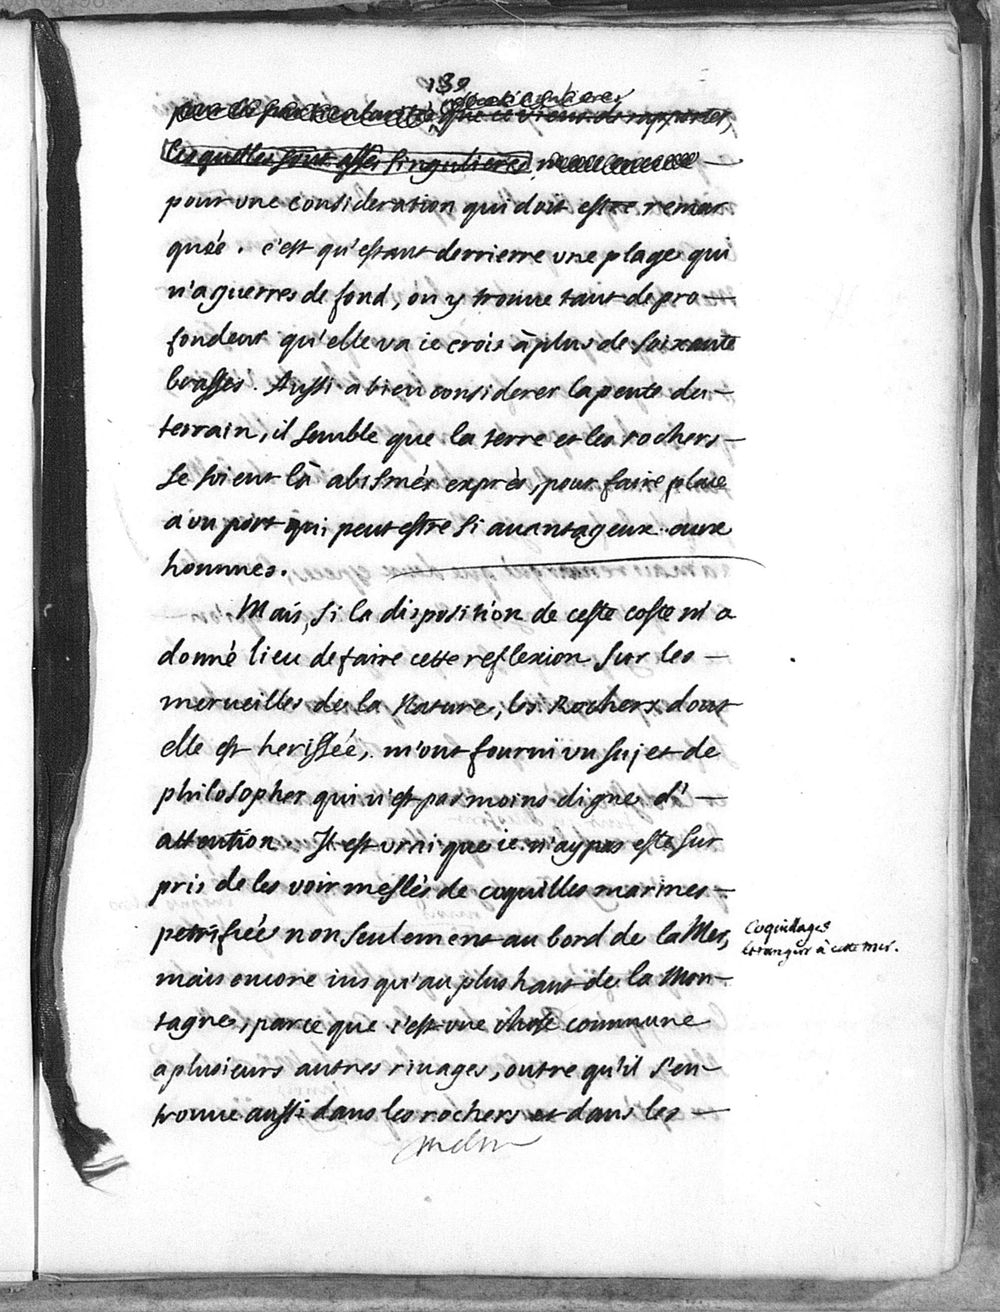 139
que ie viens de rapporter,
lesquelles sont assés singulieres,
pour vne consideration qui doit estre remar
quée. c'est qu'estant derrierre vne plage qui
n'a guerres de fond, on y trouue tant de pro—
fondeur qu'elle va ie crois à plus de soixante
brasses. Aussi a bien considerer la pente du—
terrain, il semble que la terre et les rochers—
se soient là abismés exprès, pour faire place
a vn port qui peut estre si auantageux aux
hommes.
Mais, si la disposition de ceste coste m'a
donné lieu de faire cette reflexion sur les—
merueilles de la Nature, les Rochers dont
elle est herissée, m'ont fourni vn sujet de
philosopher qui n'est pas moins digne d'—
attention. Il est vrai que ie n'ay pas esté sur
pris de les voir meslés de coquilles marines—
petrifiée non seulement au bord de la Mer,
mais encore iusqu'au plus haut de la Mon—
tagne, parce que c'est vne chose commune
a plusieurs autres riuages, outre qu'il s'en—
trouue aussi dans les rochers et dans les—
Coquillages
etrangers à cette mer.